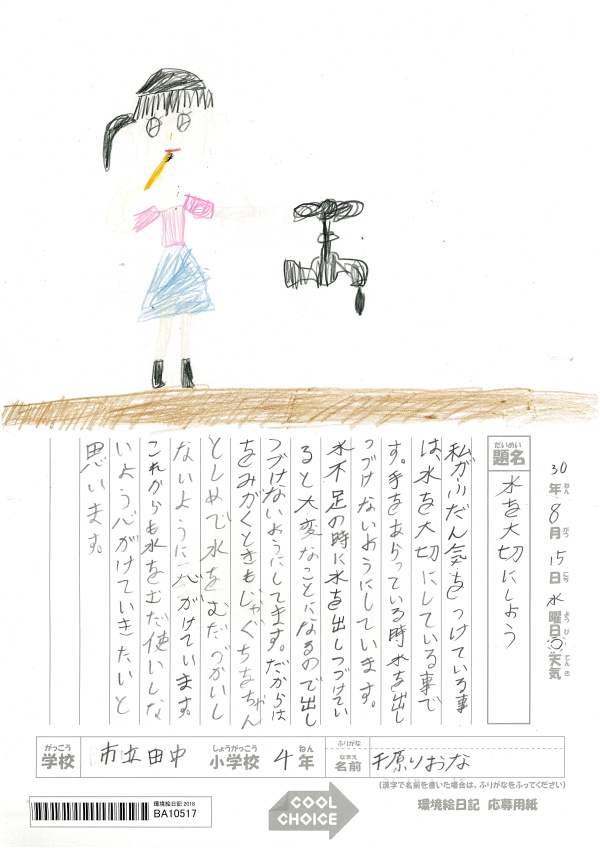 30年ねん8月がつ15日にち水曜日ようび天気てんき
題名だいめい
水を大切にしよう
私がふだん気をつけている事
は、水を大切にしている事で
す。手をあらっている時水を出し
つづけないようにしています。
水不足の時に水を出しつづけてい
ると大変なことになるので出し
つづけないようにしてます。だからは
をみがくときもじゃぐちをちゃん
としめて水をむだづかいし
ないように心がけています。
これからも水をむだ使いしな
いよう心がけていきたいと
思います。
がっこう しょうがっこう ねん ふりがな
学校 市立田中 小学校 4年 なまえ 名前 千原りおな
(漢字で名前を書いた場合は、ふりがなをふってください)
環境絵日記 2018
BA10517
COOL CHOICE
環境絵日記 応募用紙